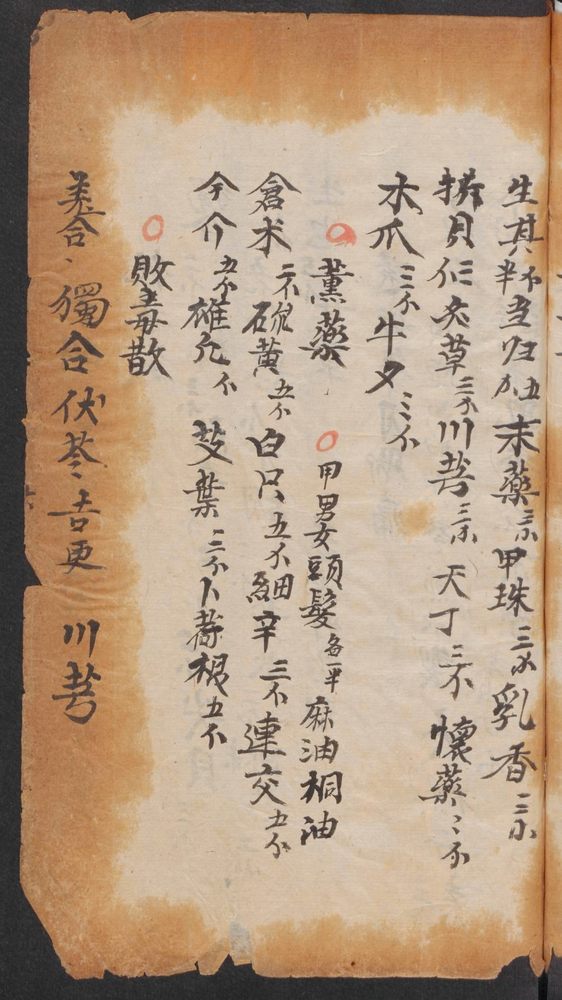 生其半不当归五加末藥三不甲珠三不乳香三不
貝仁炙草三不川芎三不天丁三不懷藥三不
木爪三不牛夕三不
薰藥 甲男女頭髮各一半麻油桐油
倉术二不硫黄五不白只五不細辛三不連交五不
今介五不雄允不艾葉三不卜荷根五不
敗毒散
羗合獨合伏苓吉更川芎